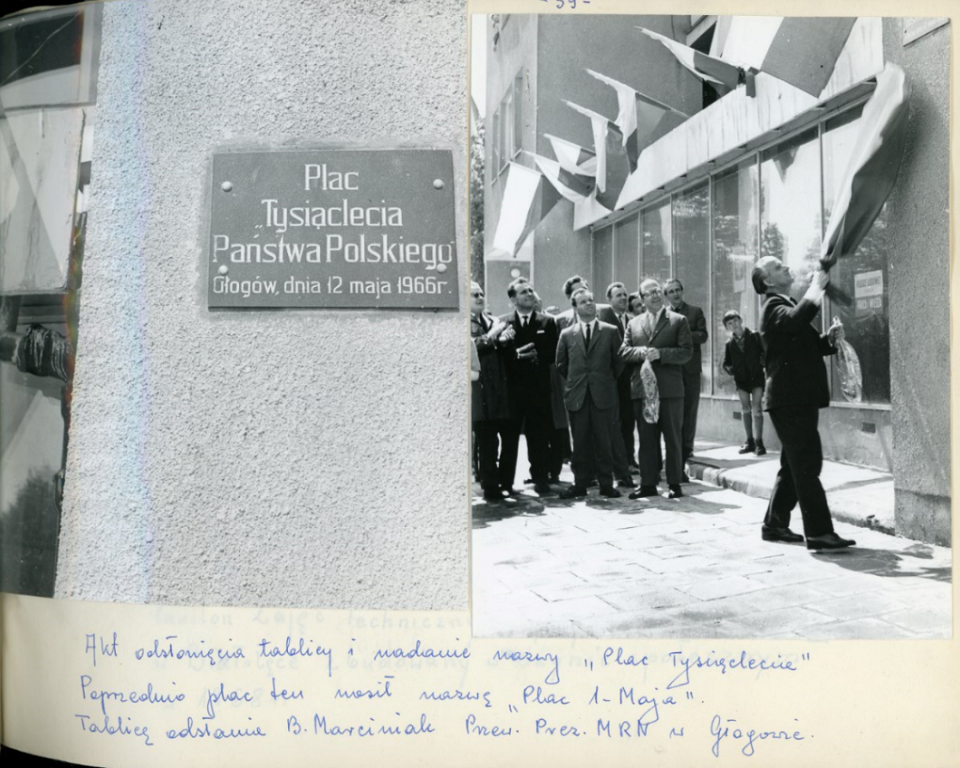 - 59 -
Plac
„Tysiąclecia
Państwa Polskiego"
Głogów, dnia 12 maja 1966r.
Akt odsłonięcia tablicy i nadanie nazwy „Plac Tysiąclecia"
Poprzednio plac ten nosił nazwę „Plac 1-Maja".
Tablicę odsłania B. Marciniak Przew. Prez. MRN w Głogowie.